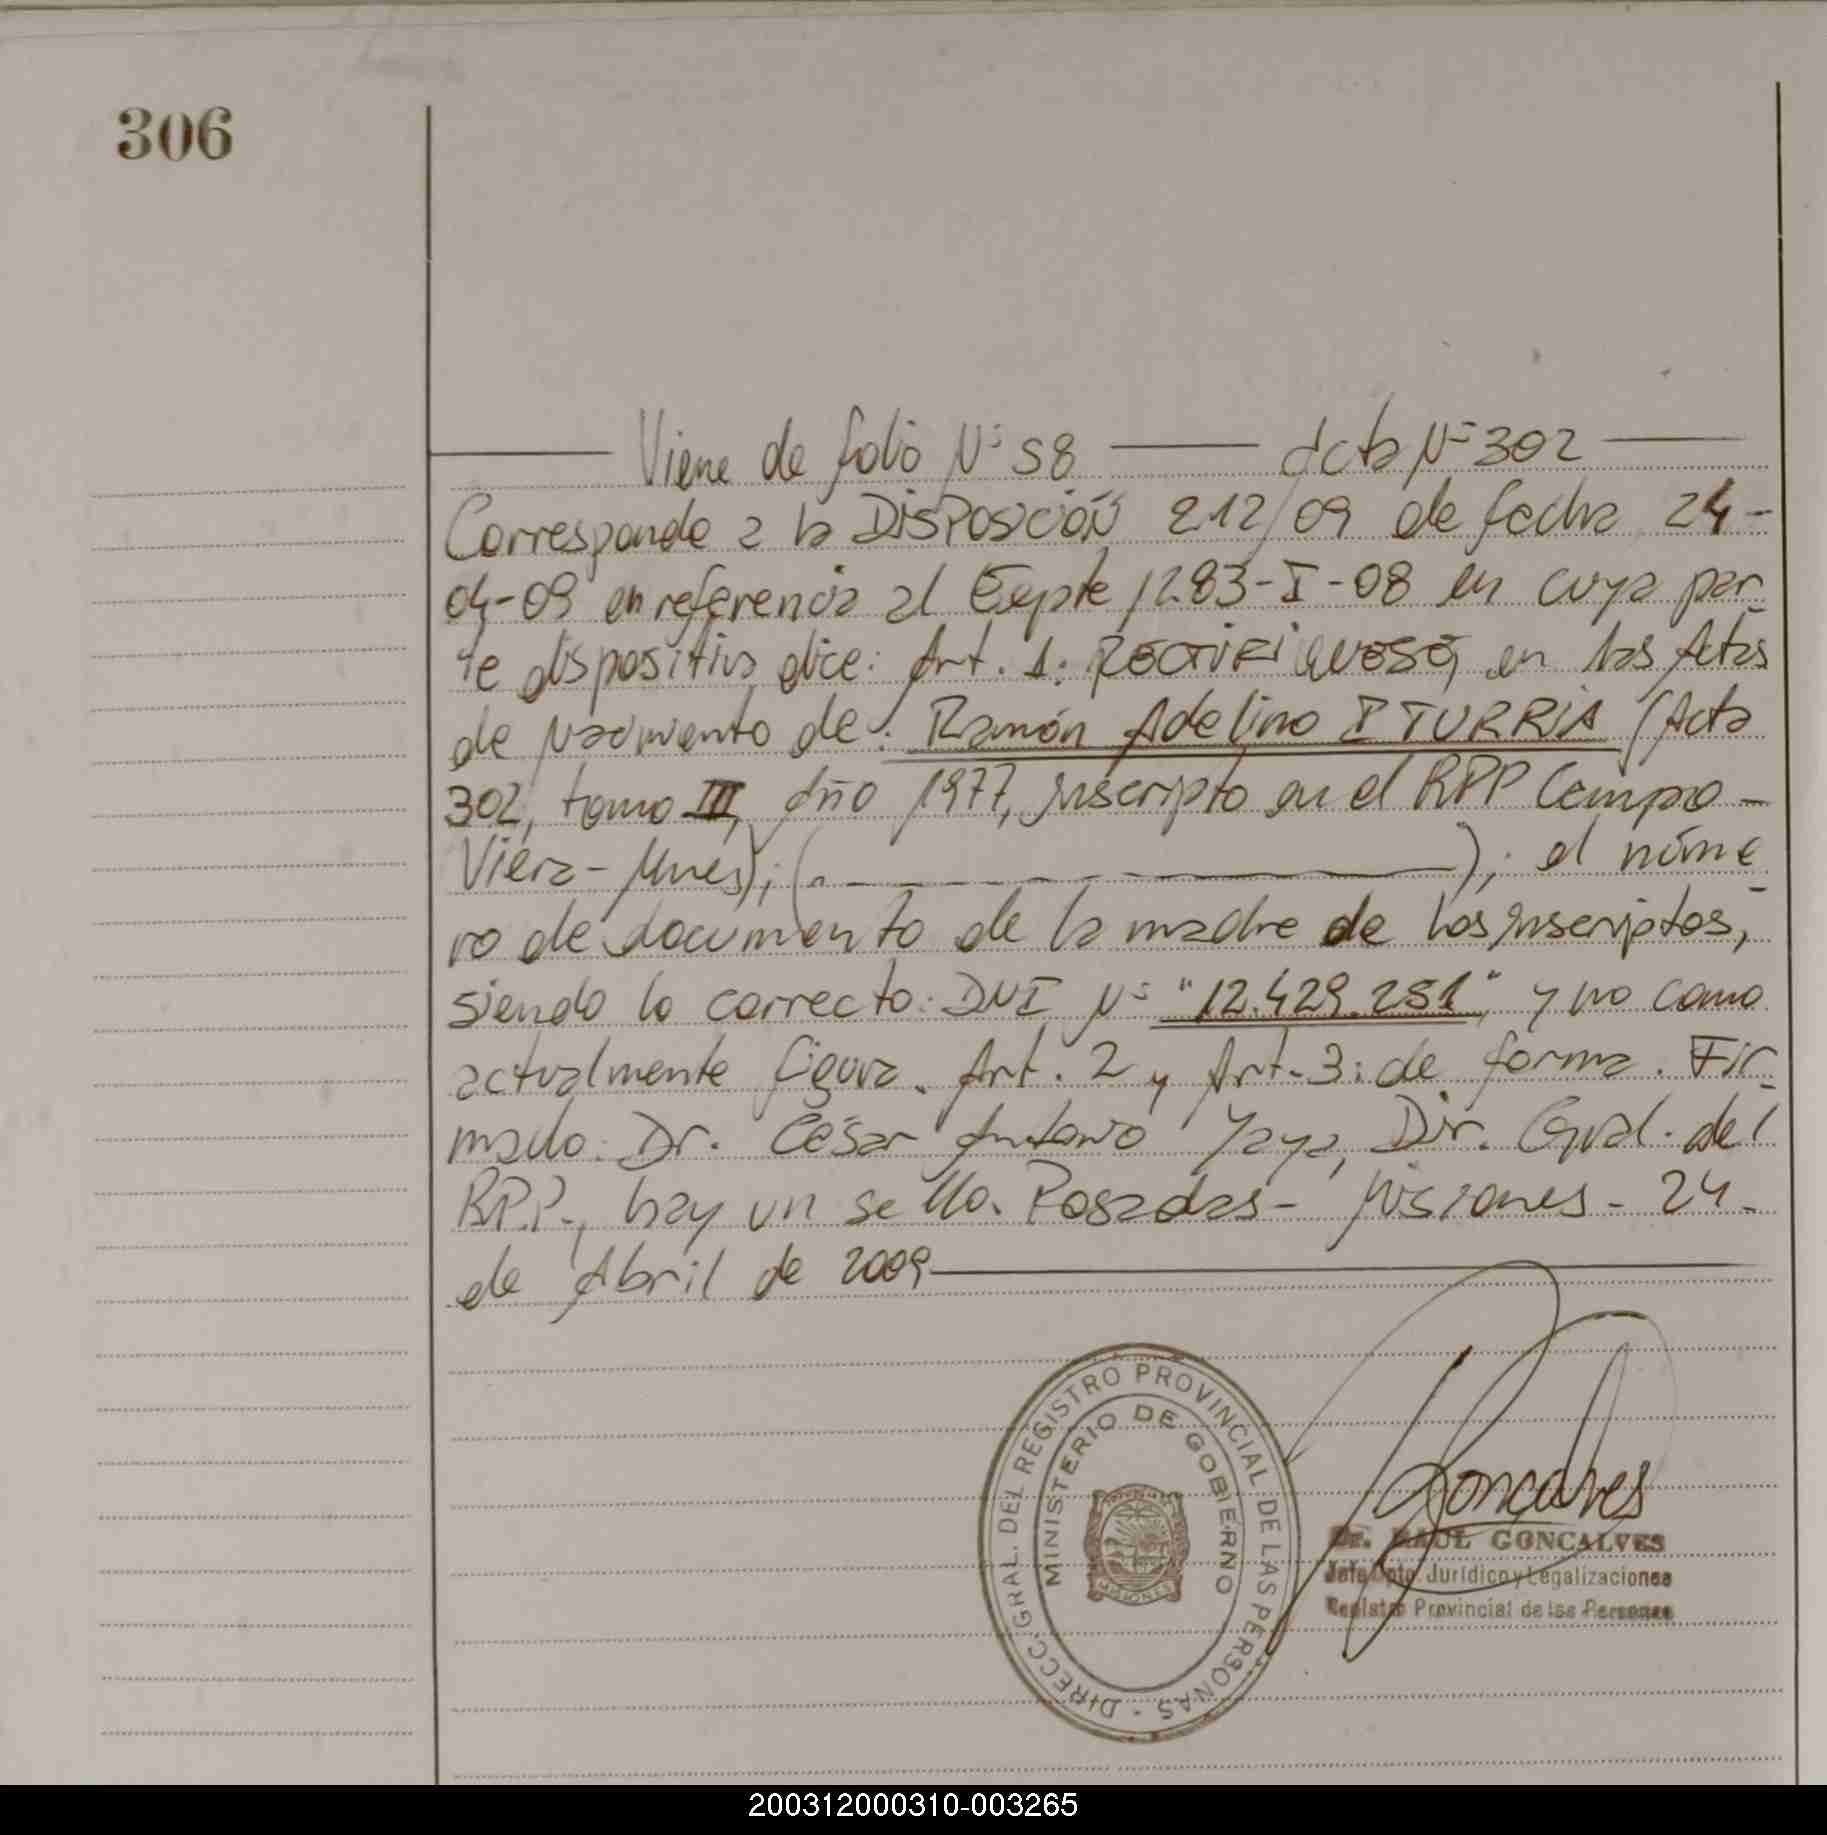 306
Viene de folio Nº 58 — Acta Nº 302
Corresponde a la DISPOSICIÓN 212/09 de fecha 24-
04-09 en referencia al Expte 1283-I-08 en cuya par-
te dispositiva dice: Art. 1: RECTIFIQUESE, en las Actas
de nacimiento de: Ramón Adelino ITURRIA (Acta
302, tomo III, Año 1977, inscripto en el RPP Campo-
Viera-Mnes); ( ); el núme-
ro de documento de la madre de los inscriptos,
siendo lo correcto: DNI Nº "12.429.251", y no como
actualmente figura. Art. 2 y Art. 3: de forma. Fir-
mado: Dr. César Antonio Yaya, Dir. Gral. del
R.P.P., hay un sello. Posadas- Misiones- 24-
de Abril de 2009
DIRECC. GRAL. DEL REGISTRO PROVINCIAL DE LAS PERSONAS
MINISTERIO DE GOBIERNO
MISIONES
Goncalves
Dr. RAUL GONCALVES
Jefe Dpto. Jurídico y Legalizaciones
Registro Provincial de las Personas
200312000310-003265